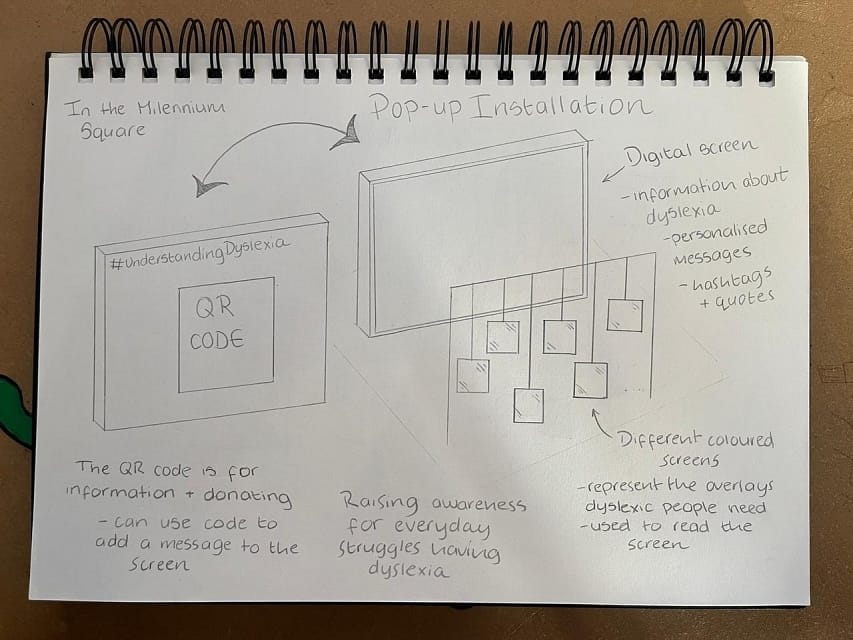 In the Milennium
Square
Pop-up Installation
#UnderstandingDyslexia
QR
CODE
Digital screen
- information about
dyslexia
- personalised
messages
- hashtags
+ quotes
Different coloured
screens
- represent the overlays
dyslexic people need
- used to read the
screen
The QR code is for
information + donating
- can use code to
add a message to the
screen
Raising awareness
for everyday
struggles having
dyslexia